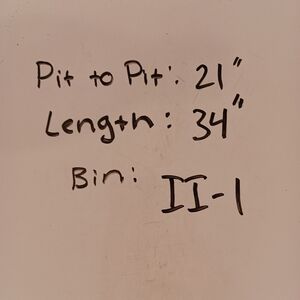 Pit to Pit: 21"
Length: 34"
Bin: II-1